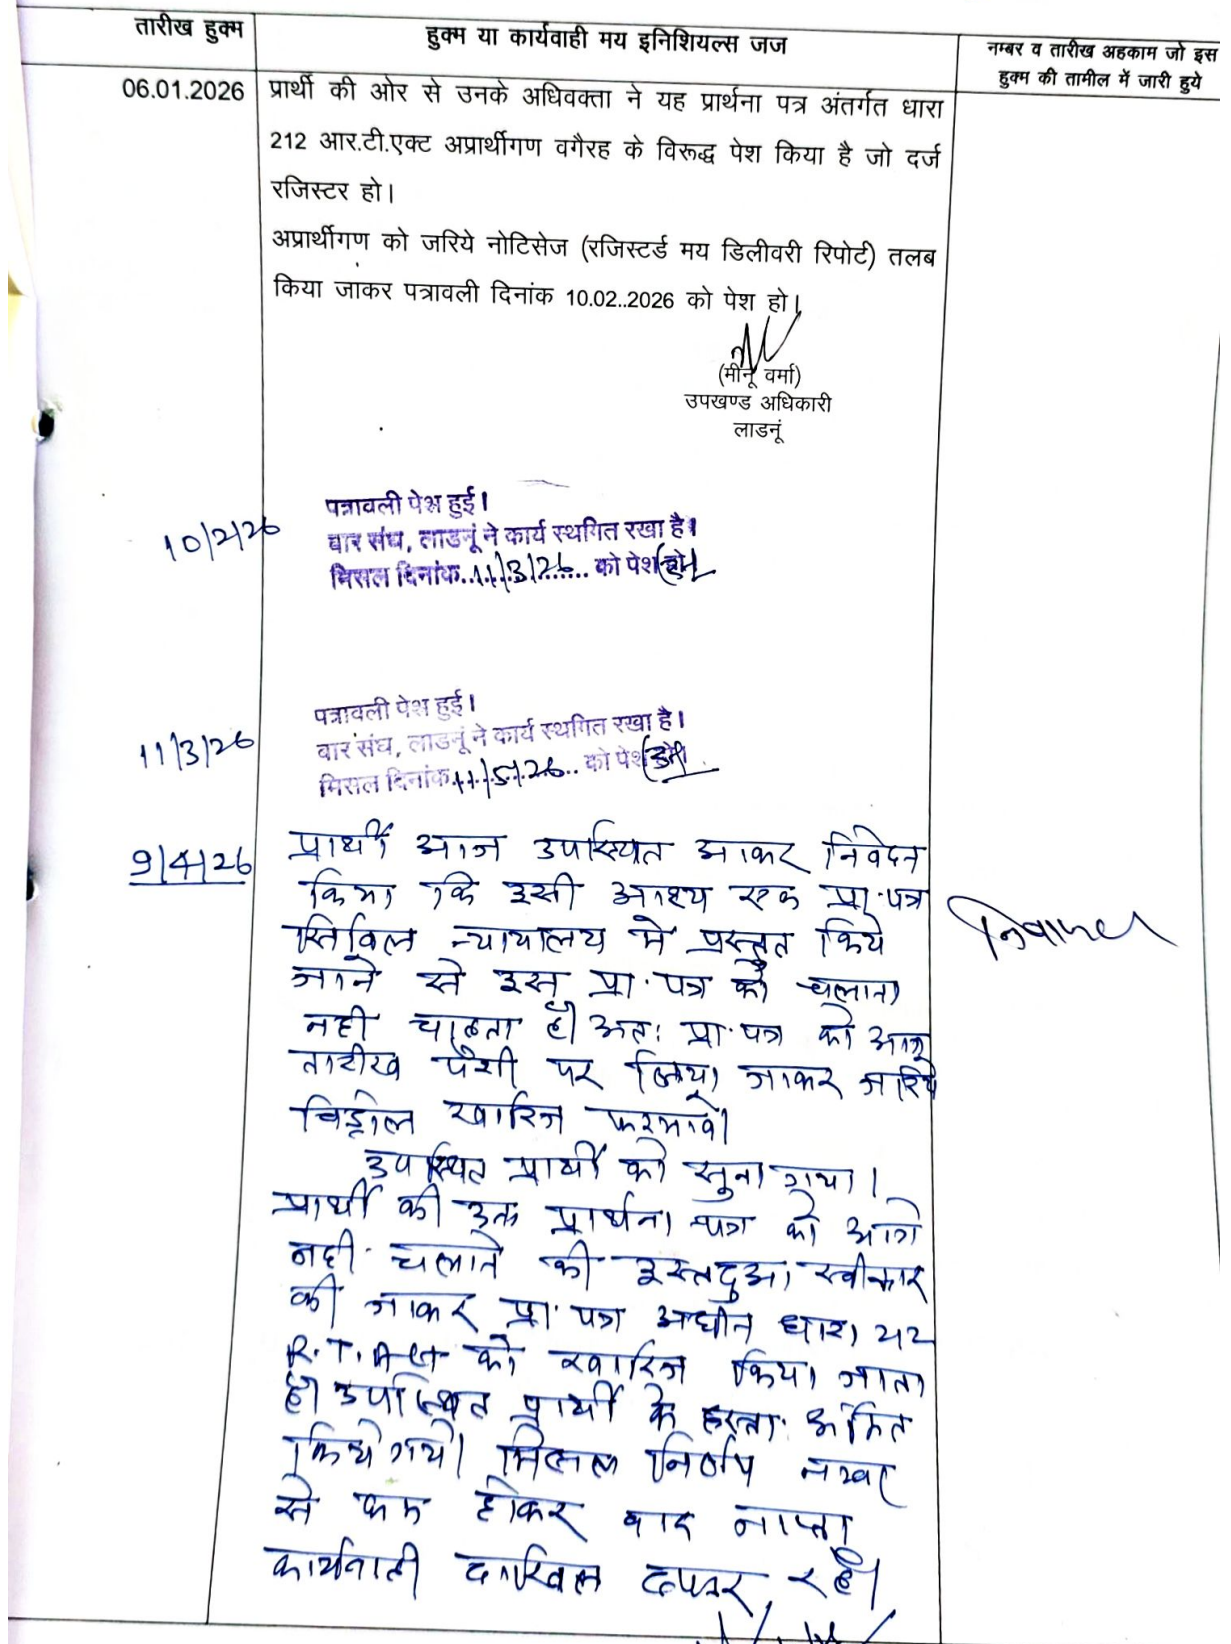 तारीख हुक्म
हुक्म या कार्यवाही मय इनिशियल्स जज
नम्बर व तारीख अहकाम जो इस
हुक्म की तामील में जारी हुये
06.01.2026
प्रार्थी की ओर से उनके अधिवक्ता ने यह प्रार्थना पत्र अंतर्गत धारा
212 आर.टी.एक्ट अप्रार्थीगण वगैरह के विरूद्ध पेश किया है जो दर्ज
रजिस्टर हो।
अप्रार्थीगण को जरिये नोटिसेज (रजिस्टर्ड मय डिलीवरी रिपोर्ट) तलब
किया जाकर पत्रावली दिनांक 10.02..2026 को पेश हो।
(मीनू वर्मा)
उपखण्ड अधिकारी
लाडनूं
10/2/26
पत्रावली पेश हुई।
बार संघ, लाडनूं ने कार्य स्थगित रखा है।
मिसल दिनांक..11/3/26..... को पेश हो।
11/3/26
पत्रावली पेश हुई।
बार संघ, लाडनूं ने कार्य स्थगित रखा है।
मिसल दिनांक.11/5/26.. को पेश हो।
9/4/26
प्रार्थी आज उपस्थित आकर निवेदन
किया कि इसी आश्य एक प्रा.पत्र
सिविल न्यायालय मे प्रस्तुत किये
जाने से इस प्रा.पत्र को चलाना
नही चाहता है। अतः प्रा.पत्र को आज
तारीख पेशी पर लिया जाकर जरिये
विड्रोल खारिज फरमावे।
उपस्थित प्रार्थी को सुना गया।
प्रार्थी की उक्त प्रार्थना पत्र को आगे
नही चलाने की इस्तदुआ स्वीकार
की जाकर प्रा.पत्र अधीन धारा 212
R.T.Act को खारिज किया जाता
है। उपस्थित प्रार्थी के हस्ता. अंकित
किये गये। मिसल निर्णय नम्बर
से कम होकर बाद जाप्ता
कार्यवाही दाखिल दफ्तर रहे।